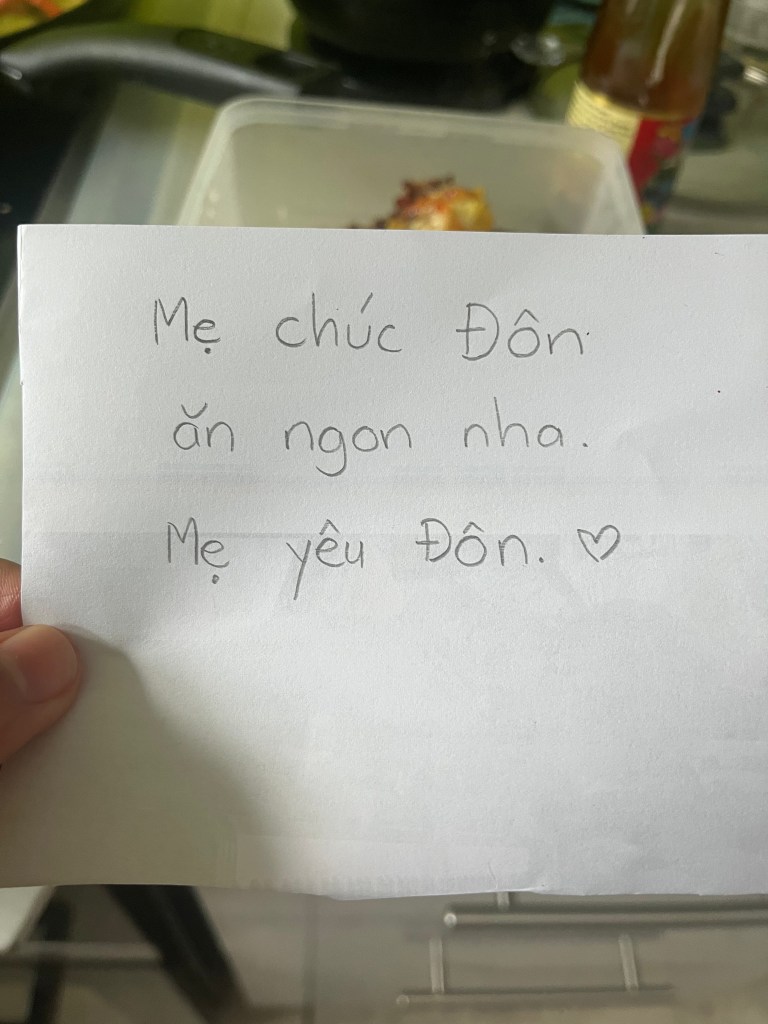 Mẹ chúc Đôn
ăn ngon nha.
Mẹ yêu Đôn. ♡